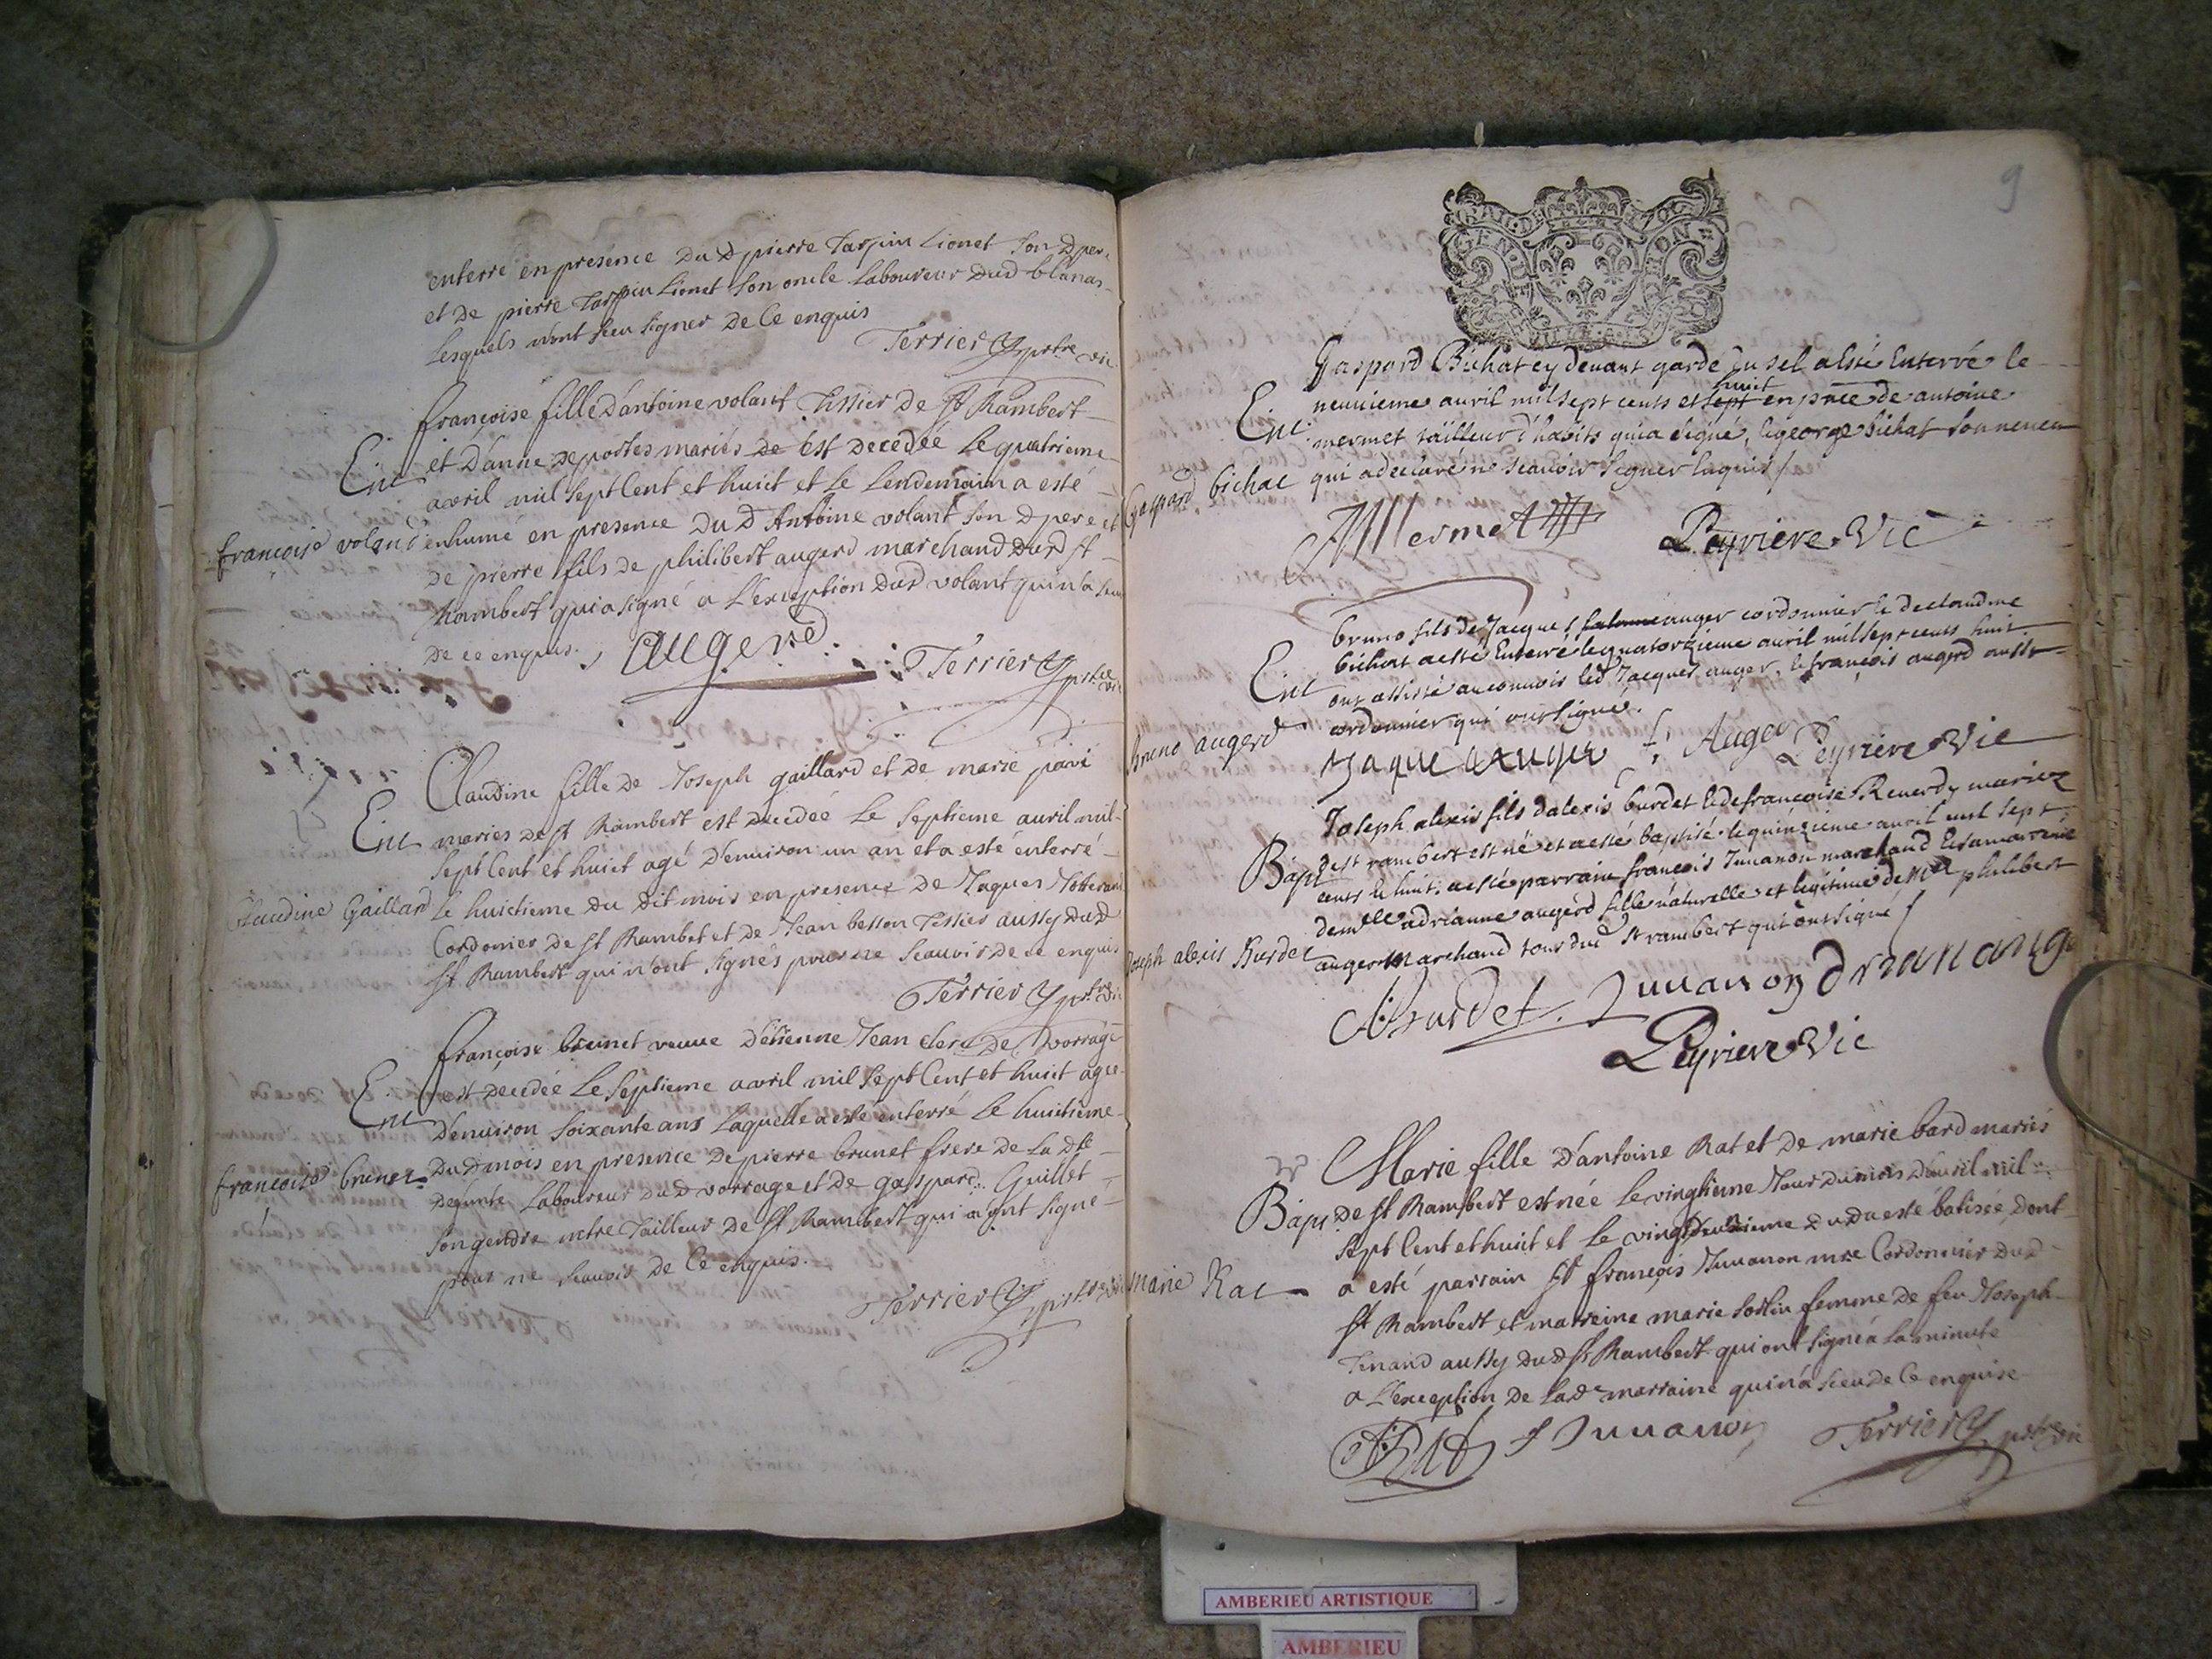 enterré en presence du d pierre Tarpin Lionet son d pere
et de pierre Tarpin Lionet son oncle laboureur dud blanas
lesquels n'ont sceu signer de ce enquis
Terrier ptre vic
françoise fille d'antoine volant Tissier de st Rambert
Ent et d'anne deportes mariés de est decedée le quatrieme
avril mil sept cent et huict et le lendemain a esté
françoise voland enhumé en presence du d Antoine volant son d pere et
de pierre fils de philibert augerd marchand dud st
Rambert qui a signé a l'exception dud volant qui n'a sceu
de ce enquis. augerd
Terrier ptre vic
Claudine fille de Joseph gaillard et de marie pavi
Ent maries de st Rambert est decedée le septieme avril mil
sept cent et huict agé d'enuiron un an et a esté enterré
Claudine Gaillard le huictieme du dit mois en presence de Jaques
Cordonier de st Rambet et de Jean besson Tissier aussy dud
st Rambert qui n'ont signés pour ne scauoir de ce enquis
Terrier ptre vic
françoise brunet veuue d'étienne Jean clerc de vorrage
Ent est decedée le septieme avril mil sept cent et huict agée
d'enuiron soixante ans laquelle a esté enterré le huictieme
françoise brunet dud mois en presence de pierre brunet frere de la dte
defunte laboureur dud vorrage et de gaspard Guillet
son gendre mtre Tailleur de st Rambert qui n'ont signé
pour ne scauoir de ce enquis.
Terrier ptre vic
9
GEN DE LION
Gaspard Bichat cy deuant garde du sel a esté Enterré le
Ent neuuieme auril mil sept cents et sept huit en pnce de antoine
mermet tailleur d'habits qui a signé, & george bichat son neueu
Gaspard bichat qui a declaré ne scauoir signer enquis
Mermet Peyriere Vic
bruno fils de Jacque auger cordonnier & de claudine
Ent bichat a esté Enterré le quatorzieme auril mil sept cents huit
ont assisté au conuois led Jacques auger, & françois augerd aussi
bruno augerd cordonnier qui ont signé.
Jaque Auger f. Auger Peyriere Vic
Joseph alexis fils d'alexis burdet & de francoise Reuerdy mariez
Bapt de st rambert est né et a esté baptisé le quinzieme auril mil sept
cents & huit. a esté parrain françois Juuanon marchand & sa marreine
demlle adrianne augerd fille naturelle et legitime de Mr philibert
Joseph alexis Burdet augerd Marchand tous dud st rambert qui ont signé
ABurdet. Juuanon drian auge
Peyriere Vic
Marie fille d'antoine Rat et de marie bard mariés
Bapt de st Rambert est née le vingtieme Jour du mois d'auril mil
sept cent et huict et le vingtdeuxieme dud a esté batisée, dont
a esté parrain st françois Juuanon mre Cordonnier dud
marie Rat st Rambert et marreine marie sorlin femme de feu Joseph
Tenand aussy dud st Rambert qui ont signé a la minute
a l'exception de lade marraine qui n'a sceu de ce enquise
A Rat f Juuanon Terrier ptre vic
AMBERIEU ARTISTIQUE
AMBERIEU